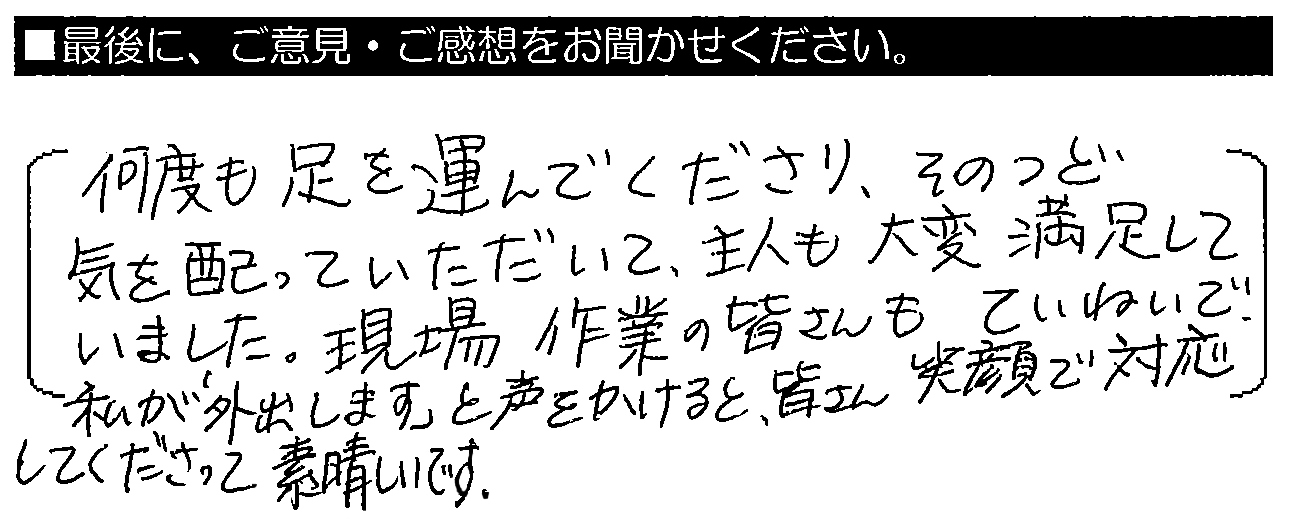 ■最後に、ご意見・ご感想をお聞かせください。
何度も足を運んでくださり、そのつど
気を配っていただいて、主人も大変満足して
いました。現場作業の皆さんもていねいで、
私が「外出します」と声をかけると、皆さん笑顔で対応
してくださって素晴しいです。